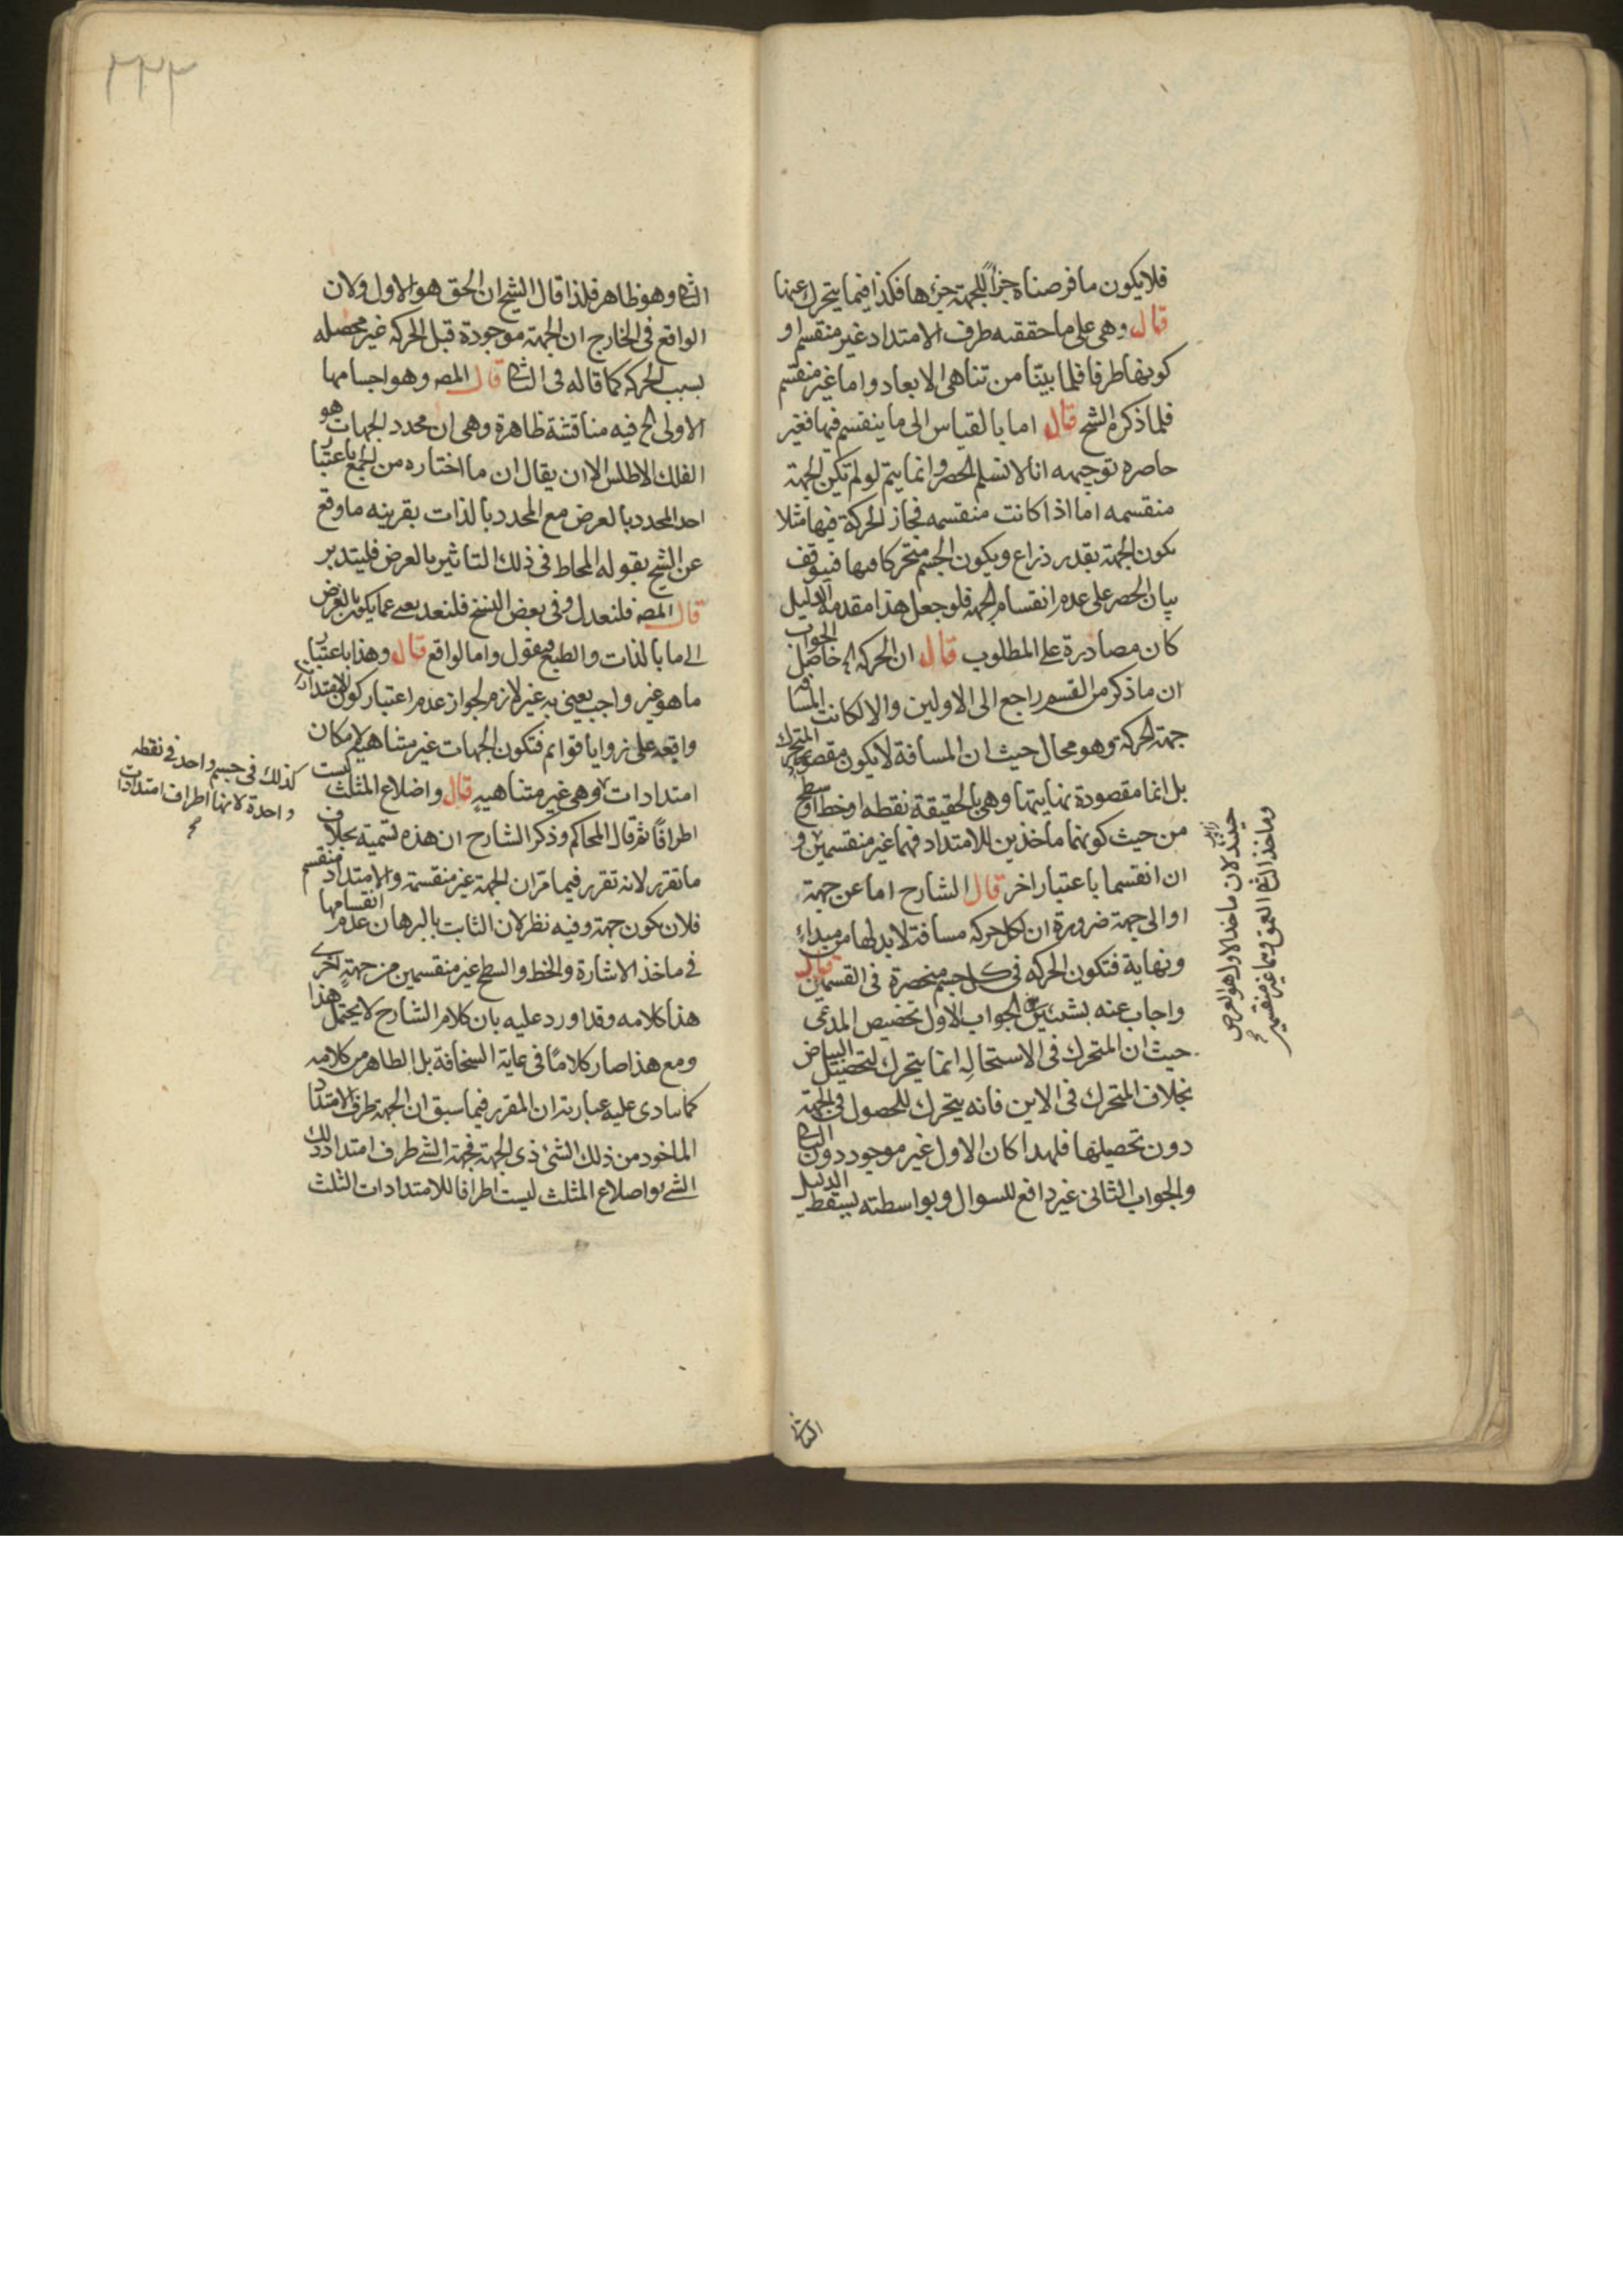 فلا يكون ما فرضناه جزأ للجهة جزءها فكذا فيما يتحرك عنها
قال وهى على ما حققته طرف الامتداد غير منقسم او
كونها طرفا فلما بيّنا من تناهى الابعاد واما غير منقسم
فلما ذكره الشيخ قال اما بالقياس الى ما ينقسم فيها فغير
حاصره توجيهه انا لا نسلم الحصر وانما يتم لو لم تكن الجهة
منقسمه اما اذا كانت منقسمه فجاز الحركة فيها مثلا
يكون الجهة بقدر ذراع ويكون الجسم متحركا فيها فيتوقف
بيان الحصر على عدم انقسام الجهة فلو جعل هذا مقدمه الدليل
كان مصادرة على المطلوب قال ان الحركه الخ حاصل الجواب
ان ما ذكر من القسم راجع الى الاولين والا لكانت المسافة
جهة الحركة وهو محال حيث ان المسافة لا يكون مقصود المتحرك
بل انما مقصودة نهايتها وهى بالحقيقة نقطه او خط او سطح
من حيث كونهما مأخذين للامتداد فهما غير منقسمين و
ان انقسما باعتبار اخر قال الشارح اما عن جهة
او الى جهة ضرورة ان لكل حركه مسافة لا بد لها من مبداء
ونهاية فتكون الحركه فى كل جسم منحصرة فى القسمين قال
واجاب عنه بشيئين الجواب الاول تخصيص المدعى
حيث ان المتحرك فى الاستحاله انما يتحرك لتحصيل البياض
بخلاف المتحرك فى الاين فانه يتحرك للحصول فى الجهة
دون تحصيلها فلهذا كان الاول غير موجود دون الثانى
والجواب الثانى غير دافع للسوال وبواسطته يسقط الدليل
حينئذ لان ماخذ الاول هو العرض
وماخذ الثانى العمق وهما غير منقسمين
٣٣٣
الثانى وهو ظاهر فلذا قال الشيخ ان الحق هو الاول ولان
الواقع فى الخارج ان الجهة موجودة قبل الحركه غير محصله
بسبب الحركه كما قاله فى الثانى قال المصـ وهو اجسامها
الاولى الخ فيه مناقشة ظاهرة وهى ان محدد الجهات هو
الفلك الاطلس الا ان يقال ان ما اختاره من الجمع باعتبار
احد المحدد بالعرض مع المحدد بالذات بقرينه ما وقع
عن الشيخ بقوله المحاط فى ذلك التاثير بالعرض فليتدبر
قال المصـ فلنعدل وفى بعض النسخ فلنعد يعنى عما يكون بالعرض
الى ما بالذات والطبع فيقول واما الواقع قال وهذا باعتبار
ما هو غير واجب يعنى به غير لازم لجواز عدم اعتبار كون الامتدادات
واقعه على زوايا قوائم فتكون الجهات غير متناهيه لامكان
امتدادات وهى غير متناهيه قال واضلاع المثلث ليست
اطرافًا ثم قال المحاكم وذكر الشارح ان هذه تسمية بخلاف
ما تقرر لانه تقرر فيما مر ان الجهة غير منقسمة والامتداد منقسم
فلان يكون جهة وفيه نظر لان الثابت بالبرهان عدم انقسامها
فى ماخذ الاشارة والخط والسطح غير منقسمين من جهة اخرى
هذا كلامه وقد اورد عليه بان كلام الشارح لا يحتمل هذا
ومع هذا صار كلامًا فى غاية السخافة بل الظاهر من كلامه
كما ينادى عليه عبارته ان المقرر فيما سبق ان الجهة طرف الامتداد
الماخود من ذلك الشئ ذى الجهة فجهة الشئ طرف امتداد ذلك
الشئ واضلاع المثلث ليست اطرافا للامتدادات الثلث
كذلك فى جسم واحد فى نقطه
واحدة لانها اطراف امتدادات
الثانى